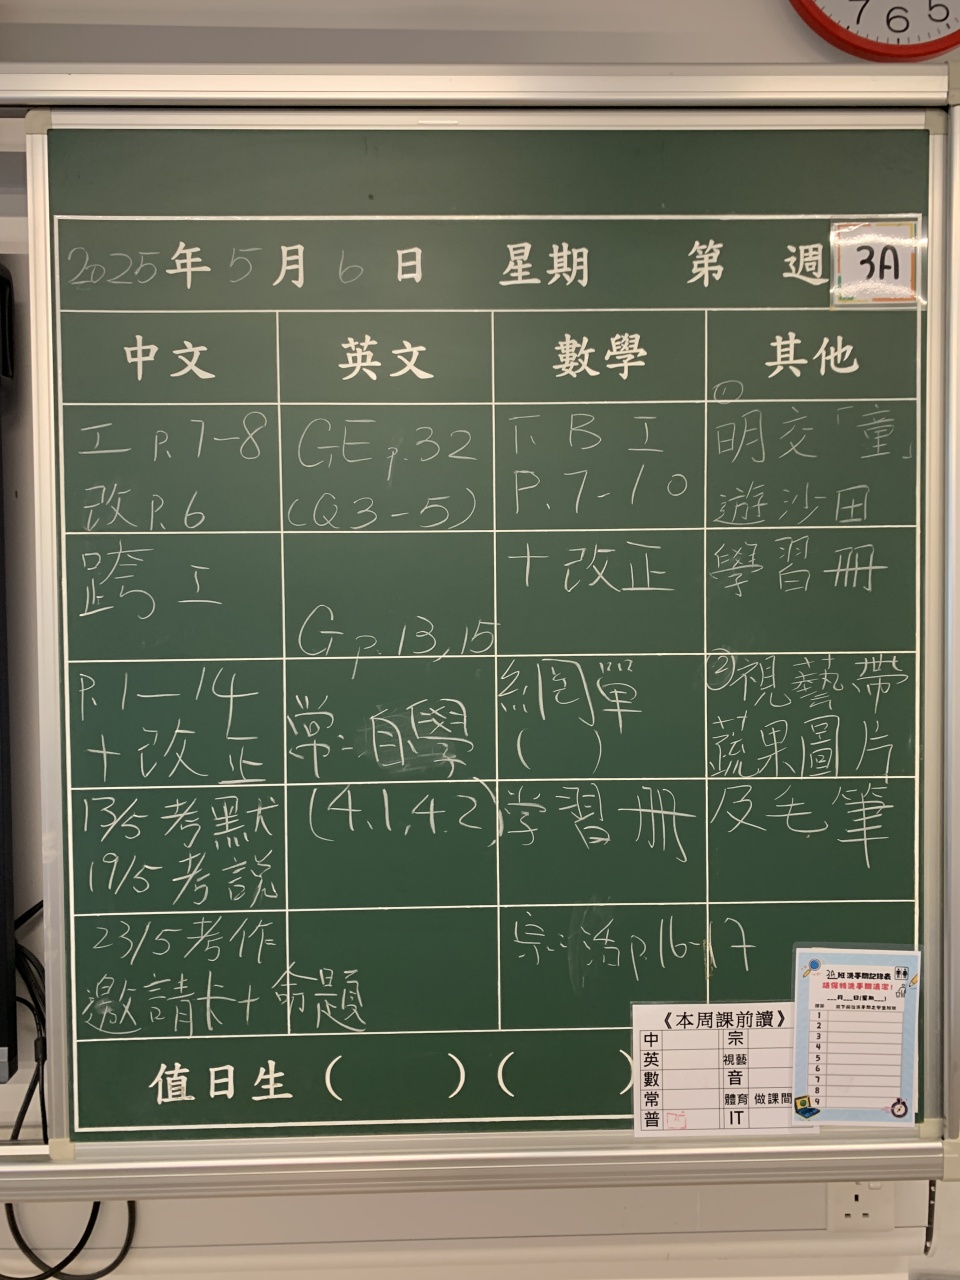 7 6 5
2025年 5月 6日 星期 第 週 3A
中文 英文 數學 其他
工 P.7-8
改 P.6
跨 工
P.1-14
+改正
13/5 考默
19/5 考説
23/5 考作
邀請卡+命題
GE p.32
(Q3-5)
G p.13,15
常:自學
(4.1,4.2)
下B工
P.7-10
+改正
網單
( )
学習册
宗:活 p.16-17
①
明交「童」
遊沙田
學習冊
②視藝帶
蔬果圖片
及毛筆
值日生 ( ) ( )
《本周課前讀》
中 宗
英 視藝
數 音
常 體育 做課間
普 IT
3A班洗手間記錄表
請保持洗手間清潔!
___月___日(星期___)
1
2
3
4
5
6
7
8
9